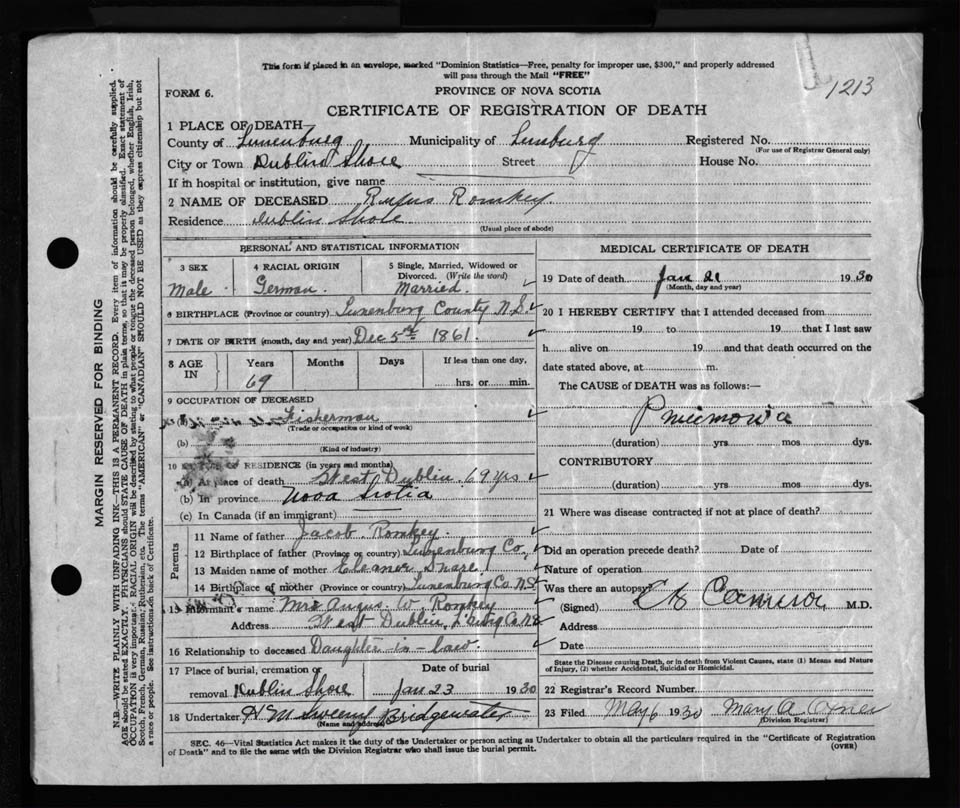 This form if placed in an envelope, marked "Dominion Statistics—Free, penalty for improper use, $300," and properly addressed
will pass through the Mail "FREE"
1213
FORM 6.
PROVINCE OF NOVA SCOTIA
CERTIFICATE OF REGISTRATION OF DEATH
1 PLACE OF DEATH
County of Lunenburg Municipality of Lunburg Registered No.
(For use of Registrar General only)
City or Town Dublin Shore Street House No.
If in hospital or institution, give name
2 NAME OF DECEASED Rufus Romkey.
Residence Dublin Shore
(Usual place of abode)
PERSONAL AND STATISTICAL INFORMATION
3 SEX
Male.
4 RACIAL ORIGIN
German.
5 Single, Married, Widowed or
Divorced. (Write the word)
Married.
6 BIRTHPLACE (Province or country) Lunenburg County N.S.
7 DATE OF BIRTH (month, day and year) Dec 5th 1861.
8 AGE
IN
Years
69
Months
Days
If less than one day,
hrs. or min.
9 OCCUPATION OF DECEASED
Fisherman
(Trade or occupation or kind of work)
(b)
(Kind of industry)
10 RESIDENCE (in years and months)
(a) At place of death West Dublin. 69 yrs
(b) In province Nova Scotia
(c) In Canada (if an immigrant)
Parents
11 Name of father Jacob Romkey
12 Birthplace of father (Province or country) Lunenburg Co.
13 Maiden name of mother Eleanor
14 Birthplace of mother (Province or country) Lunenburg Co. N.S.
15 Informant's name Mrs Angus W. Romkey
Address West Dublin,
16 Relationship to deceased Daughter-in-law.
17 Place of burial, cremation or Date of burial
removal Dublin Shore Jan 23 1930
18 Undertaker H M Sweeny Bridgewater
(Name and address)
MEDICAL CERTIFICATE OF DEATH
19 Date of death Jan 21 1930
(Month, day and year)
20 I HEREBY CERTIFY that I attended deceased from
19 to 19 that I last saw
h alive on 19 and that death occurred on the
date stated above, at m.
The CAUSE of DEATH was as follows:—
Pneumonia
(duration) yrs mos dys.
CONTRIBUTORY
(duration) yrs mos dys.
21 Where was disease contracted if not at place of death?
Did an operation precede death? Date of
Nature of operation
Was there an autopsy
(Signed) Cameron M.D.
Address
Date
State the Disease causing Death, or in death from Violent Causes, state (1) Means and Nature
of Injury, (2) whether Accidental, Suicidal or Homicidal.
22 Registrar's Record Number
23 Filed May 6 1930 Mary A
(Division Registrar)
SEC. 46—Vital Statistics Act makes it the duty of the Undertaker or person acting as Undertaker to obtain all the particulars required in the "Certificate of Registration
of Death" and to file the same with the Division Registrar who shall issue the burial permit.
(OVER)
MARGIN RESERVED FOR BINDING
N.B.—WRITE PLAINLY WITH UNFADING INK.—THIS IS A PERMANENT RECORD. Every item of information should be carefully supplied.
AGE should be stated EXACTLY. PHYSICIANS should STATE CAUSE OF DEATH in plain terms, so that it may be properly classified. Exact statement of
OCCUPATION is very important. RACIAL ORIGIN will be described by stating to what people or tongue the deceased person belonged, whether English, Irish,
Scotch, French, German, Russian, Ruthenian, etc. The terms "AMERICAN" or "CANADIAN" SHOULD NOT BE USED as they express citizenship but not
a race or people. See instructions on back of Certificate.